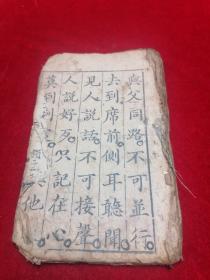 與父同路不可並行
去到席前側耳聽聞
見人說話不可接聲
人說好歹只記在心
莫到
他